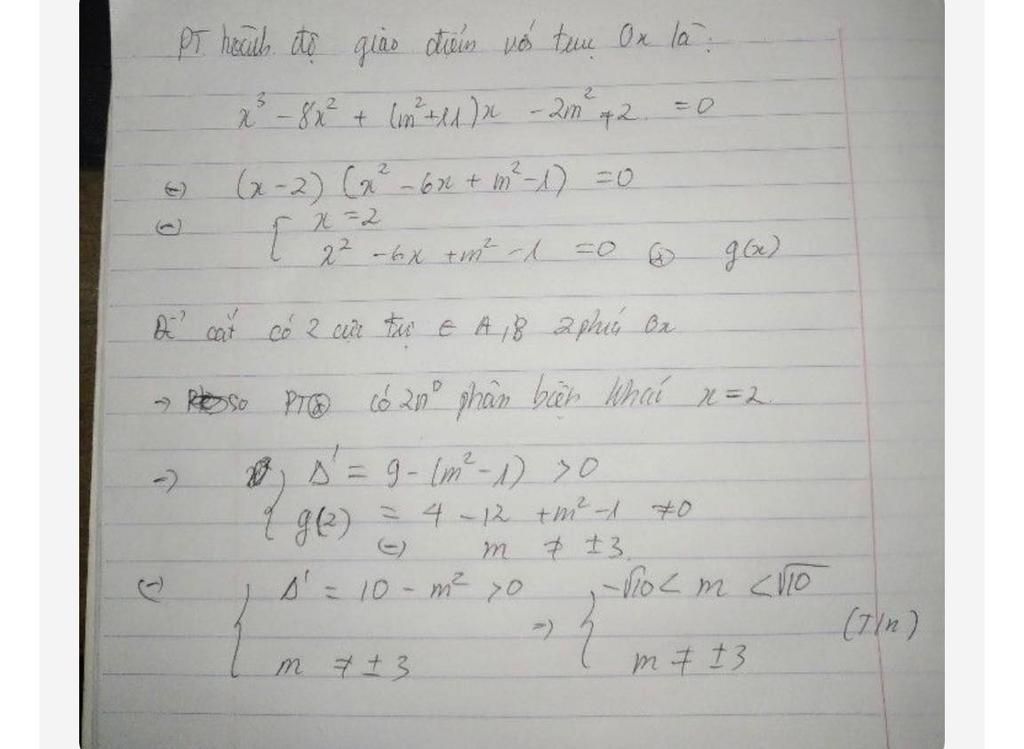 PT hoành độ giao điểm với trục Ox là:
x³ - 8x² + (m²+11)x - 2m² + 2 = 0
(=) (x-2) (x² - 6x + m² - 1) = 0
(=) [ x = 2
x² - 6x + m² - 1 = 0 (*) g(x)
Để cắt có 2 cực trị ∈ A, B 2 phía Ox
→ PT(*) có 2n⁰ phân biệt khác x = 2
=) { Δ' = 9 - (m² - 1) > 0
g(2) = 4 - 12 + m² - 1 ≠ 0
(=) m ≠ ±3
(=) { Δ' = 10 - m² > 0 =) { -√10 < m < √10 (T/m)
m ≠ ±3 m ≠ ±3